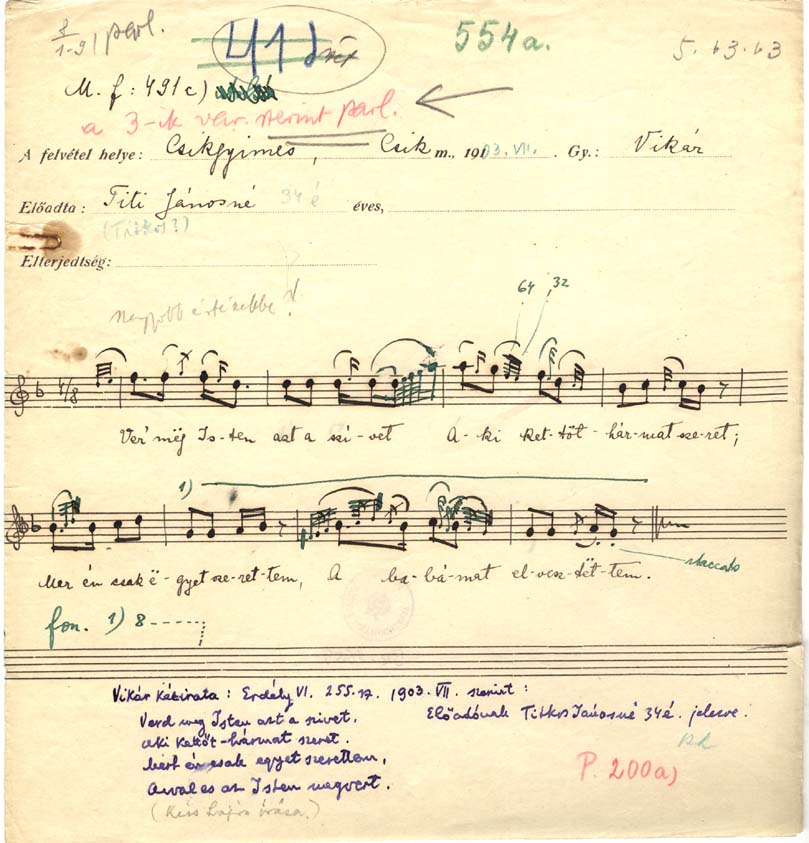 1-9| parl.
411
554a.
5. 63.63
M. f: 491c)
a 3-ik var. szerint parl.
A felvétel helye: Csikgyimes, Csik m., 1903. VII. Gy.: Vikár
Előadta: Titi Jánosné 34 é éves,
(Titkos?)
Elterjedtség:
Nagyobb értékekbe!
64 32
4/8
Ver' még Is-ten azt a szi-vet A-ki ket-töt-hár-mat sze-ret;
1)
Mer én csak ë-gyet sze-ret-tem, A ba-bá-mat el-vesz-tët-tem.
staccato
fon. 1) 8
Vikár kézirata: Erdély VI. 255.17. 1903. VII. szerint:
Verd meg Isten azt a szivet. Előadónak Titkos Jánosné 34 é. jelezve.
aki kettőt-hármat szeret.
Mert én csak egyet szerettem,
Avval es az Isten megvert.
P. 200a)